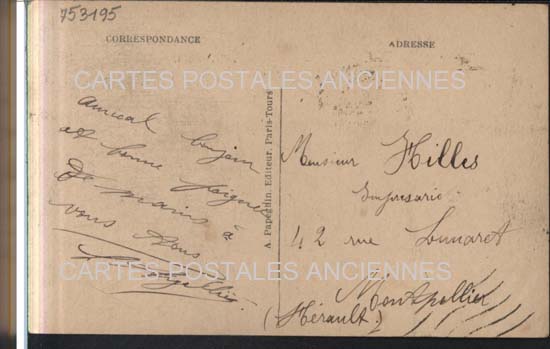 753195
CORRESPONDANCE
ADRESSE
CARTES POSTALES ANCIENNES
amical bonjour
et bonne poignée
De mains à
vous tous
A. Papeghin, Editeur, Paris-Tours
Monsieur Hilles
Impresario
42 rue
Montpellier
(Hérault)
CARTES POSTALES ANCIENNES